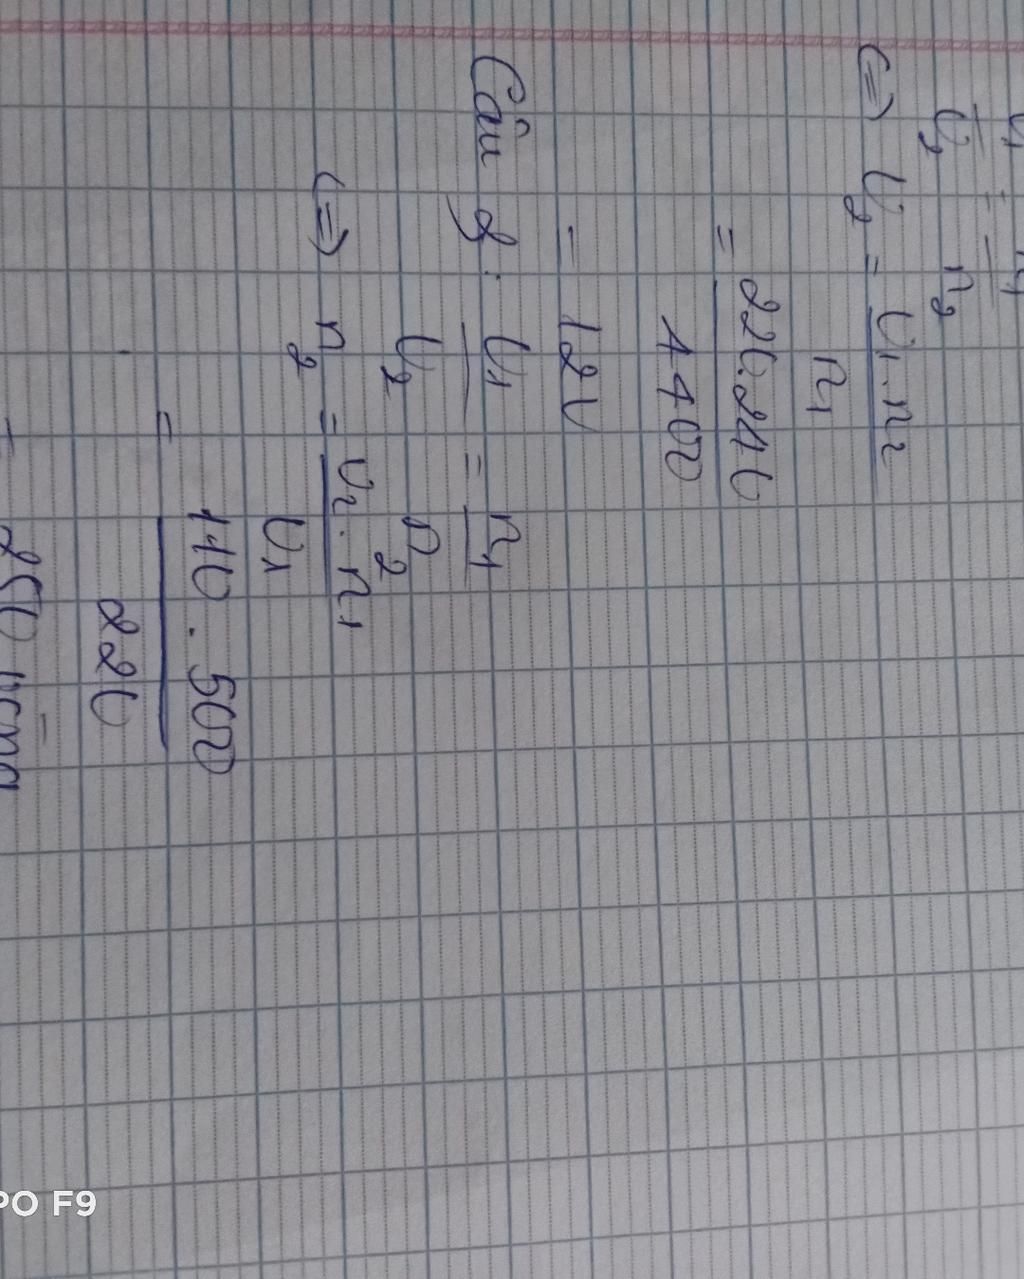 U₁/U₂ = n₁/n₂
(=) U₂ = U₁.n₂/n₁
= 220.240/4400
= 12V
Câu 2: U₁/U₂ = n₁/n₂
(=) n₂ = U₂.n₁/U₁
= 110.500/220
= 250 vòng
PO F9